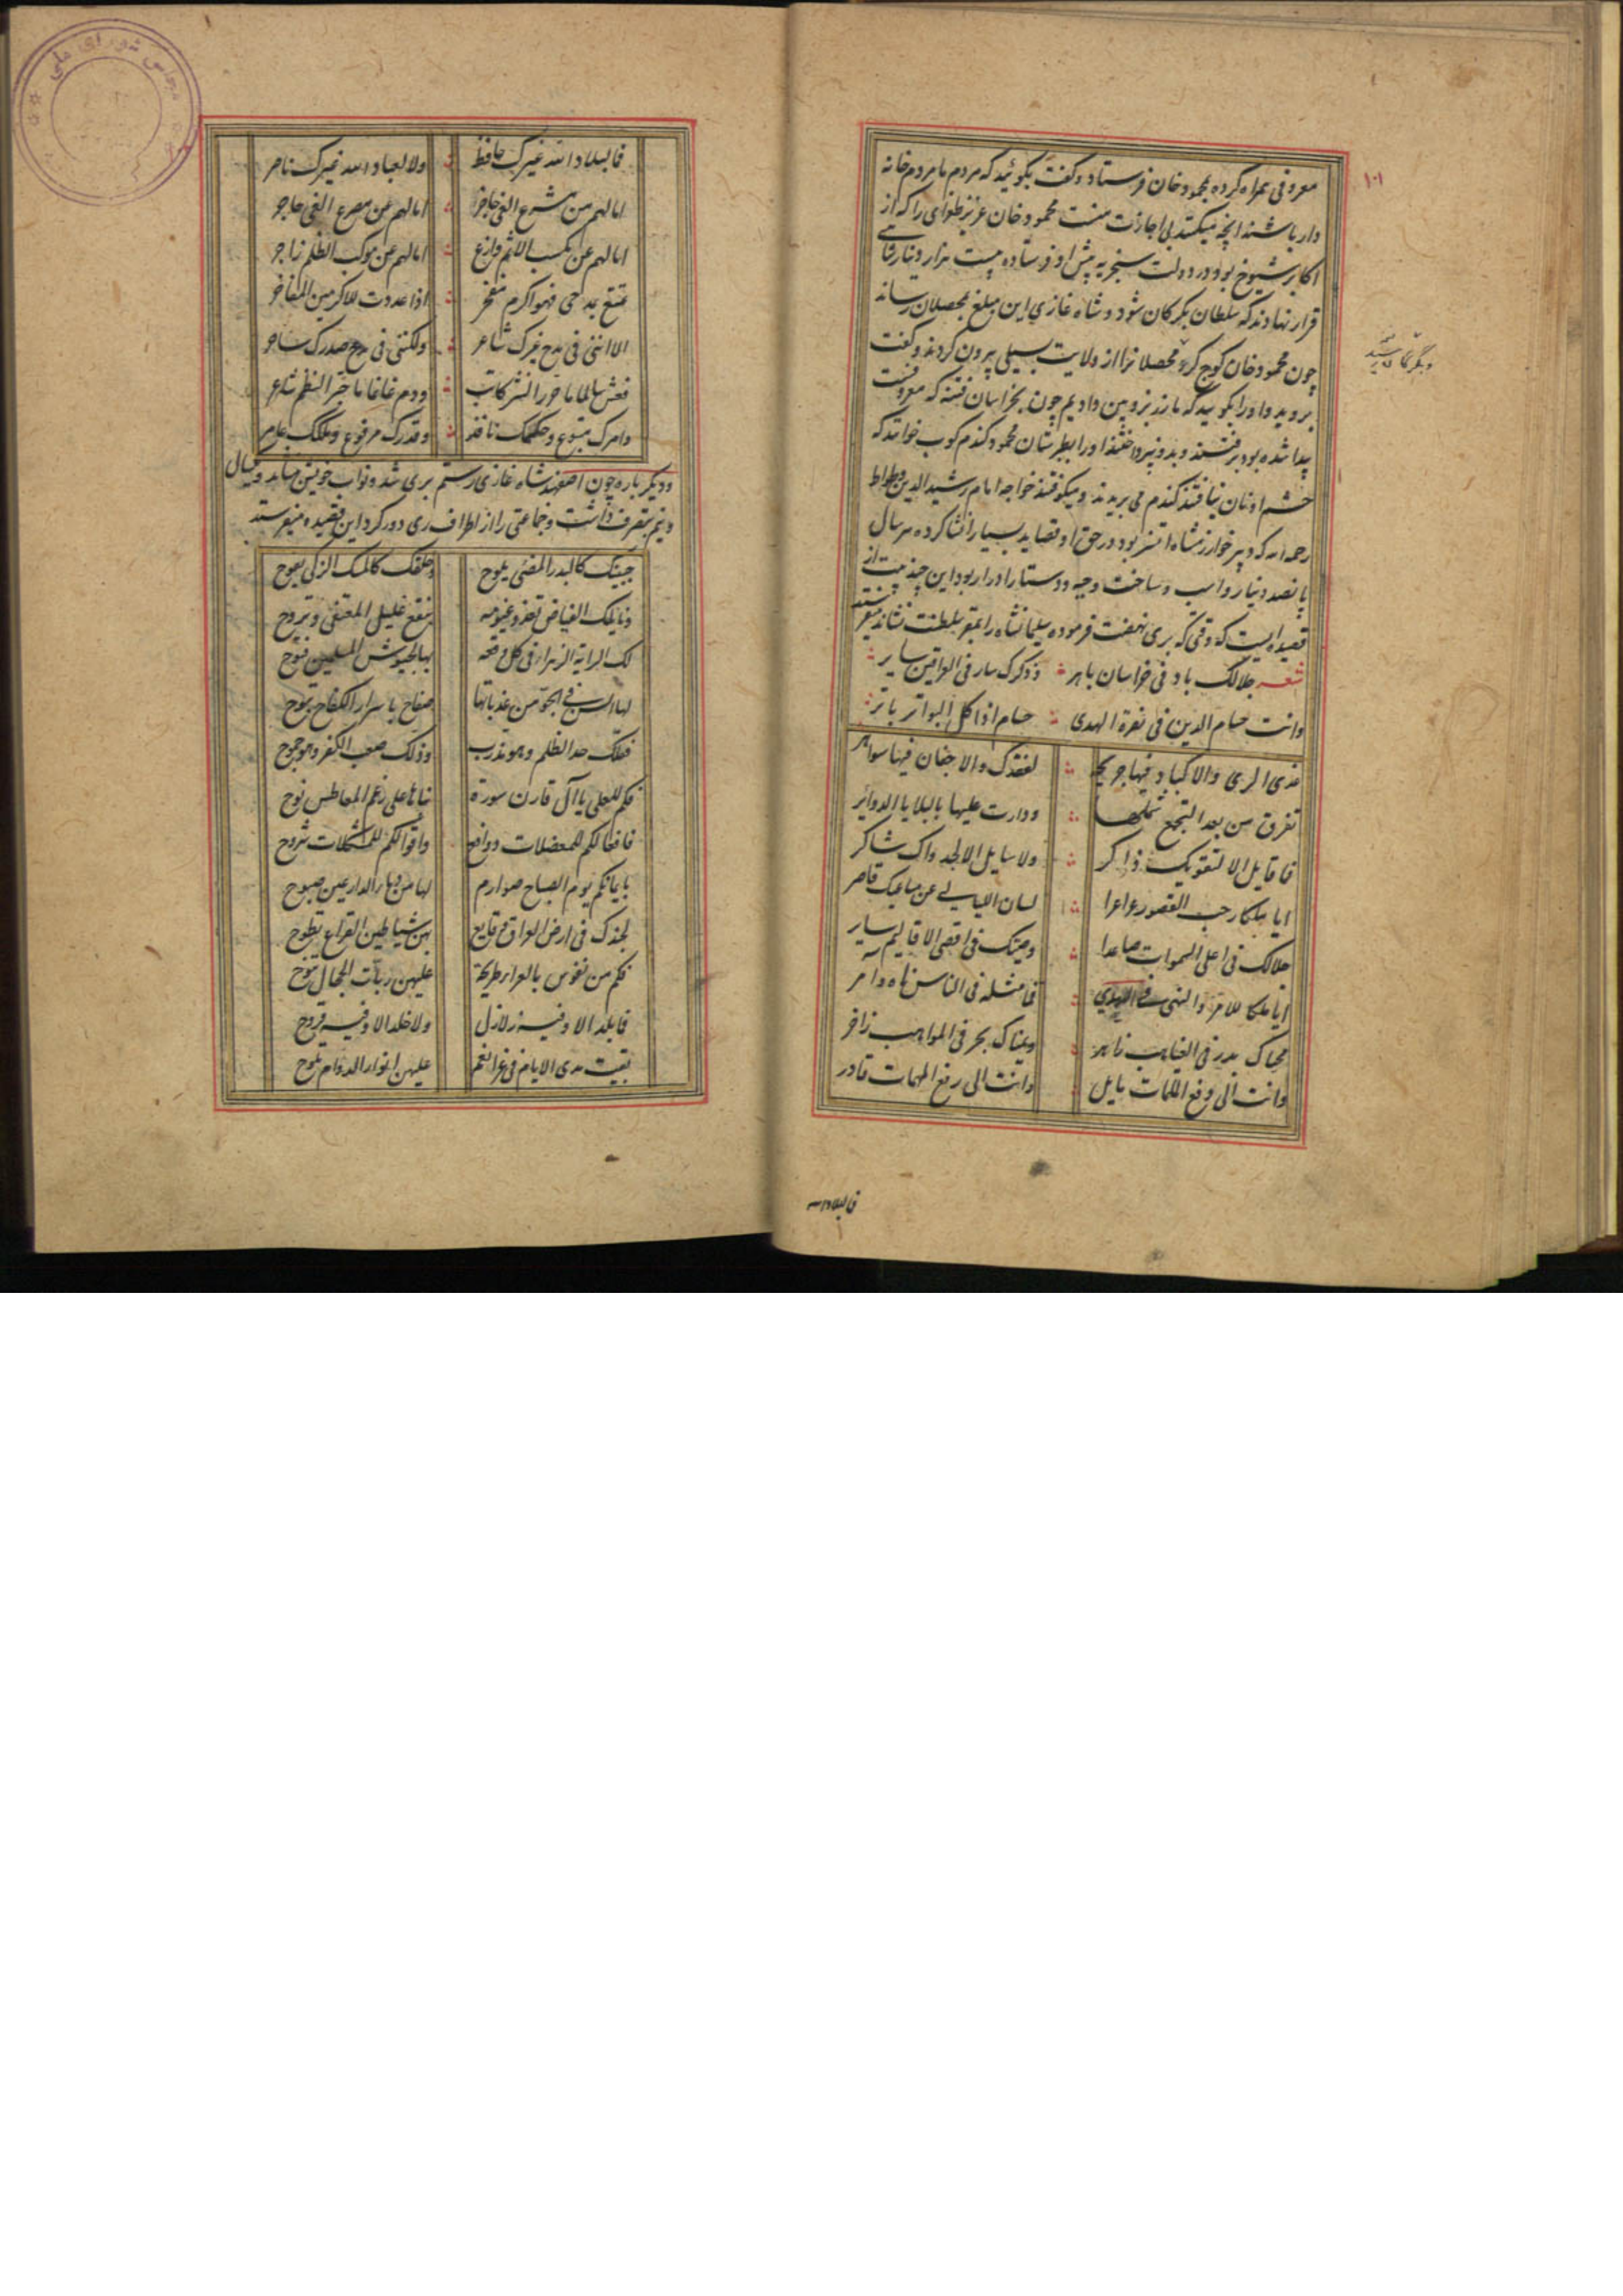 معروفی همراه کرده بمحمود خان فرستاد و گفت بگوئید که مردم ما مردم خانه
دار باشند آنچه میکنند بی اجازت منست محمود خان عزیز طغرای را که از
اکابر شیوخ بود در دولت سنجریه پیش او فرستاده بیست هزار دینار
قرار نهادند که سلطان بگرکان شود و شاه غازی این مبلغ بمحصلان رساند
چون محمود خان کوچ کرد محصلانرا از ولایت بسیلی بیرون کردند و گفت
بروید و او را بگویید که ما زر بزوبین دادیم چون بخراسان فتنه که معروفست
پیدا شده بود برفتند و بدو نپرداختند او را بطبرستان محمود گندم کوب خوانند که
حشم او نان نیافتند گندم می بریدند و میکوفتند خواجه امام رشید الدین وطواط
رحمه الله که دبیر خوارزمشاه اتسز بود در حق او قصاید بسیار انشا کرده هر سال
پانصد دینار و اسب و ساخت و جبه و دستار ادرار بود این چند بیت از
قصیده ایست که وقتی که بری نهضت فرموده سلیمانشاه را بمقر سلطنت نشاند
شعر جلالک باد فی خراسان باهر وذکرک سار فی العراقین سایر
وانت حسام الدین فی نصرة الهدی حسام اذا کل البواتر باتر
غدی الری والاکباد فیها جریحة لفقدک والاجفان فیها سواهر
تفرق من بعد التجمع شملها ودارت علیها بالبلایا الدوایر
فما قایل الا لتقویک ذاکر ولا سایل الا لجدواک شاکر
ایا ملکا رحب القصور لسان اللیالی عن مساعیک قاصر
جلالک فی اعلی السموات صاعدا وصیتک فی اقصی الاقالیم سایر
ایا ملکا للامر والنهی فی الهدی فما مثله فی الناس ناه وامر
محیاک بدر فی الغیاهب زاهر ویمناک بحر فی المواهب زاخر
وانت الی دفع الملمات مایل وانت الی رفع المهمات قادر
فما لبلاد الله
۱۰۱
فما لبلاد الله غیرک حافظ ولا لعباد الله غیرک ناصر
اما لهم من مشرع الغی حاجز اما لهم عن مصرع البغی حاجر
اما لهم عن مکسب الاثم وازع اما لهم عن موکب الظلم زاجر
تمتع بمدحی فهو اکرم مفخر اذا عددت للاکرمین المفاخر
الا اننی فی مدح غیرک شاعر ولکننی فی مدح صدرک ساحر
فعش سالما ما حرر النثر کاتب ودم غانما ما حبر النظم شاعر
وامرک متبوع وحکمک نافذ وقدرک مرفوع وملکک عامر
ودیگر باره چون اصفهبد شاه غازی رستم بری شد و نواب خویش بماند و سال
و نیم بتصرف داشت و جماعتی را از اطراف ری دور کرد این قصیده میفرستد
جبینک کالبدر المضیء یلوح وخلقک کالمسک الزکی یفوح
ونایلک الفیاض تغدو غیومه فینقع غلیل المعتفی وتروح
لک الرایة الزهراء فی کل وقعة بها لجیوش المسلمین فتوح
لها السن فی الجو من عذباتها فصاح باسرار الکفاح تبوح
ففلک حد الظلم وهو مذرب وذلک صعب الکفر وهو جموح
فکم للعلی یا آل قارن سورة
فافعالکم للمعضلات دوافع واقوالکم للمشکلات شروح
بایمانکم یوم الصباح صوارم لها من دماء الدارعین صبوح
لجندک فی ارض العراق وقایع بهن شیاطین القراع تطوح
فکم من نفوس بالعراء طریحة علیهن ربات الحجال تنوح
فما بلد الا وفیه زلازل ولا خلد الا وفیه قروح
بقیت مدی الایام فی علیهن انوار الدوام تلوح